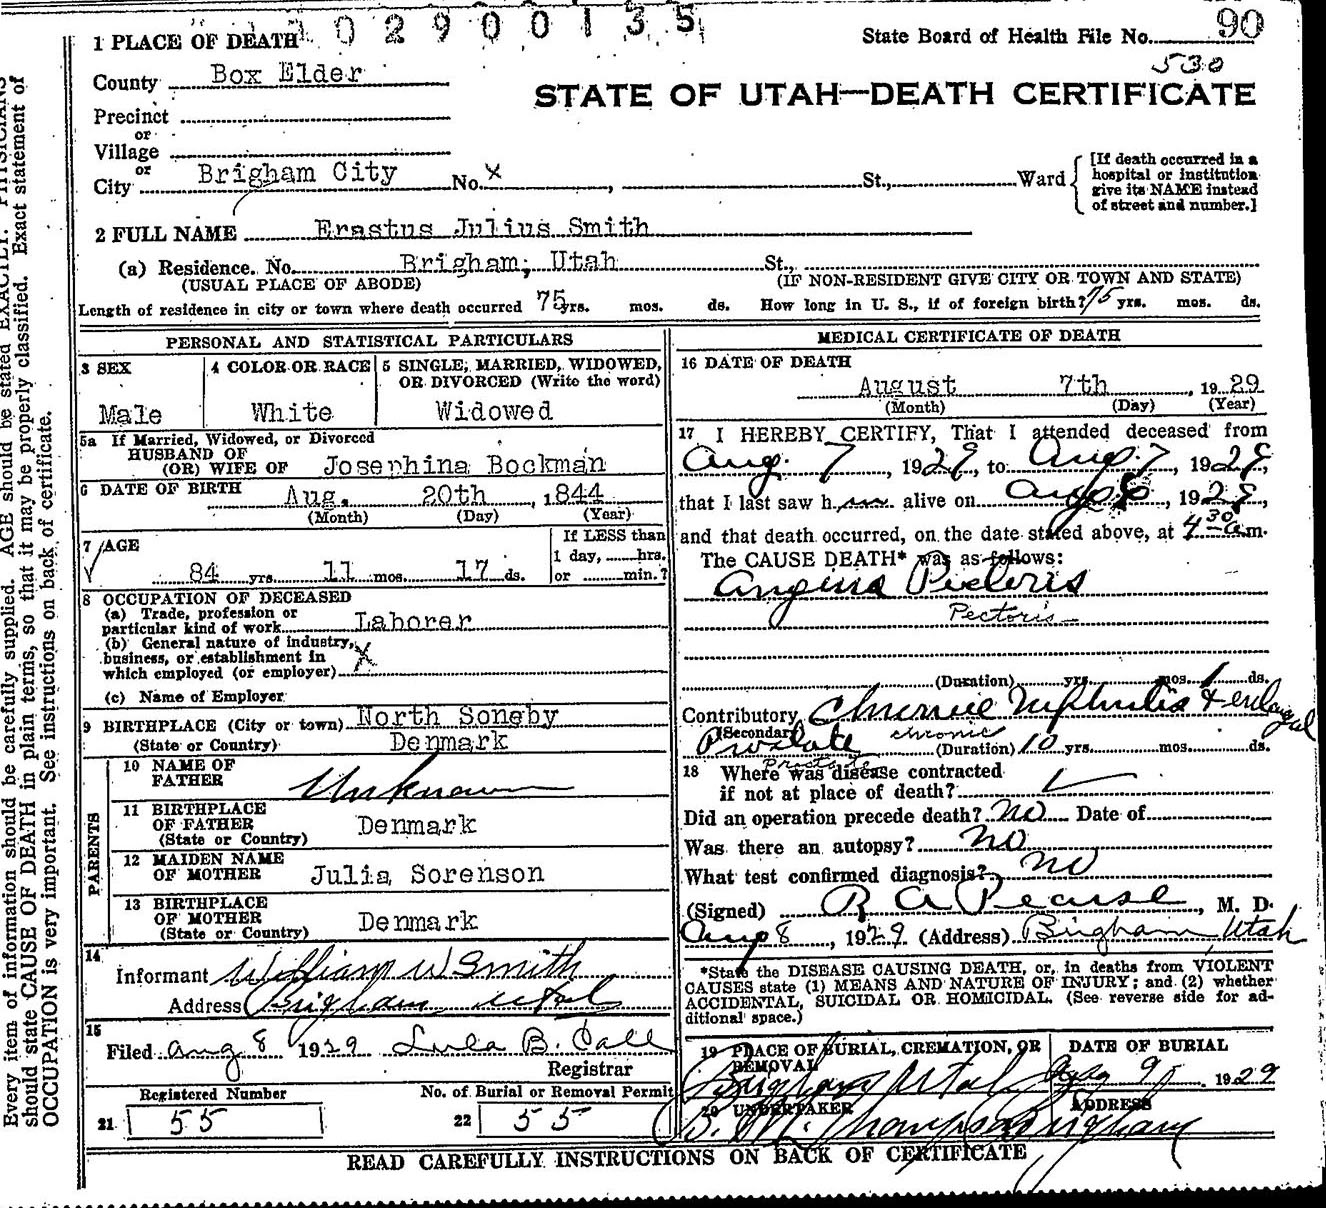 1 0 2 9 0 0 1 3 5
State Board of Health File No. 90
530
1 PLACE OF DEATH
County Box Elder
STATE OF UTAH—DEATH CERTIFICATE
Precinct
or
Village
or
City Brigham City No. x , St., Ward
[If death occurred in a
hospital or institution
give its NAME instead
of street and number.]
2 FULL NAME Erastus Julius Smith
(a) Residence. No. Brigham, Utah St.,
(USUAL PLACE OF ABODE) (IF NON-RESIDENT GIVE CITY OR TOWN AND STATE)
Length of residence in city or town where death occurred 75 yrs. mos. ds. How long in U. S., if of foreign birth? 75 yrs. mos. ds.
PERSONAL AND STATISTICAL PARTICULARS
3 SEX
Male
4 COLOR OR RACE
White
5 SINGLE, MARRIED, WIDOWED,
OR DIVORCED (Write the word)
Widowed
5a If Married, Widowed, or Divorced
HUSBAND OF
(OR) WIFE OF Josephina Bockman
6 DATE OF BIRTH Aug. 20th , 1844
(Month) (Day) (Year)
7 AGE
84 yrs. 11 mos. 17 ds.
If LESS than
1 day, hrs.
or min.?
8 OCCUPATION OF DECEASED
(a) Trade, profession or
particular kind of work Laborer
(b) General nature of industry,
business, or establishment in
which employed (or employer) X
(c) Name of Employer
9 BIRTHPLACE (City or town) North Soneby
(State or Country) Denmark
PARENTS
10 NAME OF
FATHER Unknown
11 BIRTHPLACE
OF FATHER Denmark
(State or Country)
12 MAIDEN NAME
OF MOTHER Julia Sorenson
13 BIRTHPLACE
OF MOTHER Denmark
(State or Country)
14
Informant William W Smith
Address Brigham Utah
15
Filed Aug 8 1929 Lula B. Call
Registrar
Registered Number No. of Burial or Removal Permit
21 55 22 55
MEDICAL CERTIFICATE OF DEATH
16 DATE OF DEATH
August 7th , 1929
(Month) (Day) (Year)
17 I HEREBY CERTIFY, That I attended deceased from
Aug. 7 , 1929, to Aug. 7 , 1929,
that I last saw h im alive on Aug 6 , 1929,
and that death occurred, on the date stated above, at 4 30 a.m.
The CAUSE DEATH* was as follows:
Angina Pectoris
Pectoris
(Duration) yrs. mos. 1 ds.
Contributory Chronic Nephritis & enlarged
(Secondary) chronic
Prostate (Duration) 10 yrs. mos. ds.
Prostate
18 Where was disease contracted
if not at place of death?
Did an operation precede death? No Date of
Was there an autopsy? No
What test confirmed diagnosis? no
(Signed) R A Pearse , M. D.
Aug 8 , 1929 (Address) Brigham Utah
*State the DISEASE CAUSING DEATH, or, in deaths from VIOLENT
CAUSES state (1) MEANS AND NATURE OF INJURY; and (2) whether
ACCIDENTAL, SUICIDAL OR HOMICIDAL. (See reverse side for ad-
ditional space.)
19 PLACE OF BURIAL, CREMATION, OR
REMOVAL
Brigham Utah
DATE OF BURIAL
Aug 9 , 1929
20 UNDERTAKER ADDRESS
Thompson Brigham
READ CAREFULLY INSTRUCTIONS ON BACK OF CERTIFICATE
Every item of information should be carefully supplied. AGE should be stated EXACTLY. PHYSICIANS
should state CAUSE OF DEATH in plain terms, so that it may be properly classified. Exact statement of
OCCUPATION is very important. See instructions on back of certificate.